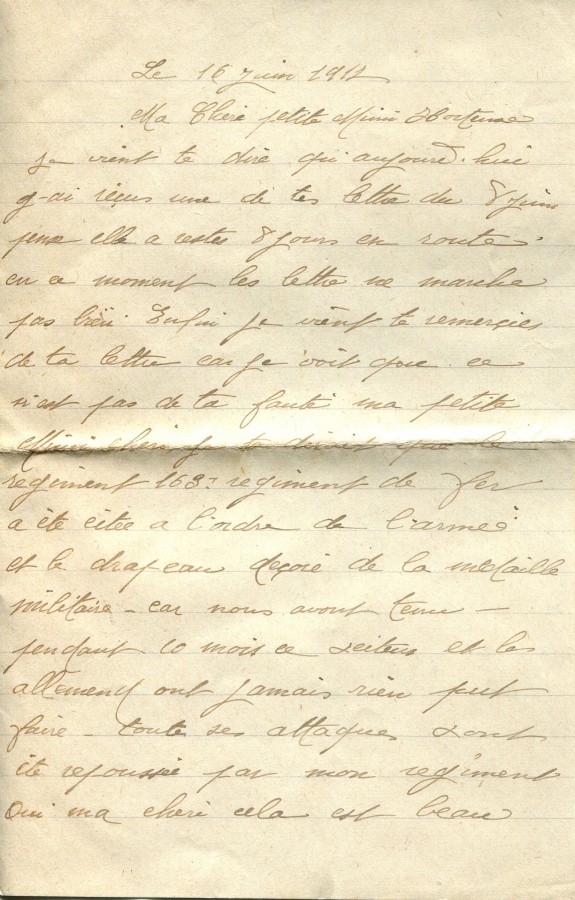 Le 16 juin 191
Ma Chère petite Mimi Hortense
je vient te dire qui aujourd'hui
j-ai réçus une de tes lettre du 8 juin
elle a restes 8 jours en route.
en ce moment les lettre ne marche
pas bien Enfin je vient te remercies
de ta lettre car je voit que ce
n'est pas de ta faute ma petite
Mimi cheri je te dirait que le
regiment 163e regiment de fer
a été citée a l'ordre de l'armée
et le drapeau deçoré de la médaille
militaire - car nous avont tenu -
pendant 10 mois ce secteur et les
allemend ont jamais rien put
faire - toute ses attaques sont
été repoussée par mon regiment
Oui ma cheri cela est beau